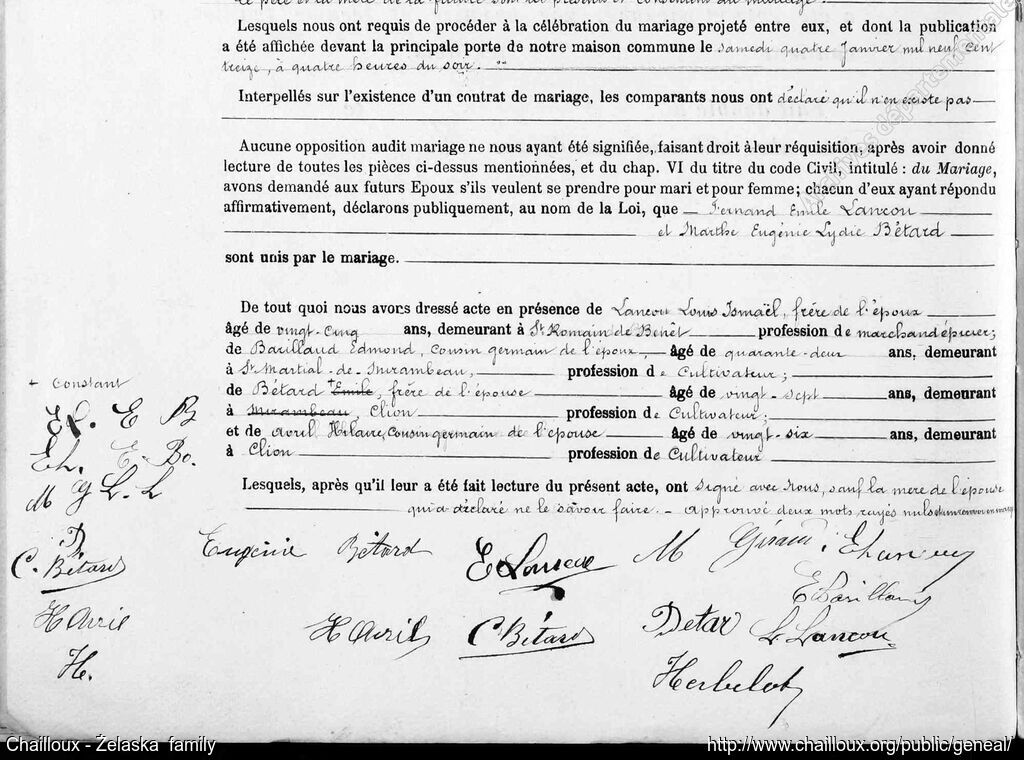 Le père et la mère de la future sont ici présents et consentent au mariage.
Lesquels nous ont requis de procéder à la célébration du mariage projeté entre eux, et dont la publication
a été affichée devant la principale porte de notre maison commune le samedi quatre Janvier mil neuf cent
treize, à quatre heures du soir.
Interpellés sur l'existence d'un contrat de mariage, les comparants nous ont déclaré qu'il n'en existe pas
Aucune opposition audit mariage ne nous ayant été signifiée, faisant droit à leur réquisition, après avoir donné
lecture de toutes les pièces ci-dessus mentionnées, et du chap. VI du titre du code Civil, intitulé : du Mariage,
avons demandé aux futurs Epoux s'ils veulent se prendre pour mari et pour femme; chacun d'eux ayant répondu
affirmativement, déclarons publiquement, au nom de la Loi, que Fernand Emile Lancou
et Marthe Eugénie Lydie Bétard
sont unis par le mariage.
De tout quoi nous avons dressé acte en présence de Lancou Louis Ismaël, frère de l'époux
âgé de vingt-cinq ans, demeurant à St Romain de Benêt profession de marchand épicier;
de Barillaud Edmond, cousin germain de l'époux âgé de quarante-deux ans, demeurant
à St Martial-de-Mirambeau, profession de Cultivateur;
de Bétard + Emile, frère de l'épouse âgé de vingt-sept ans, demeurant
à Mirambeau, Clion profession de Cultivateur;
et de Avril Hilaire, Cousin germain de l'épouse âgé de vingt-six ans, demeurant
à Clion profession de Cultivateur
Lesquels, après qu'il leur a été fait lecture du présent acte, ont signé avec Nous, sauf la mère de l'épouse
qui a déclaré ne le savoir faire. Approuvé deux mots rayés nuls
+ Constant
E L. E B
E. Bo.
M G L. L
D
C. Bétard
H Avril
H.
Eugénie Bétard E Lancou M Giraud
H Avril C Bétard Betar L Lancou
Herbelot
Archives départementales
Chailloux - Želaska family
http://www.chailloux.org/public/geneal/